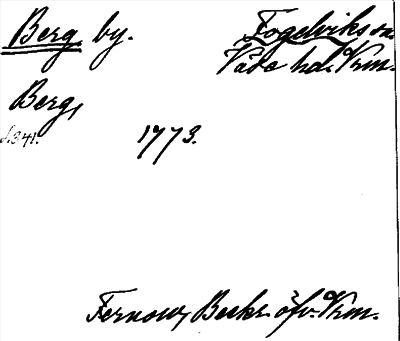 Berg, by. Fogelviks sn.
Väse hd. Vrm.
Berg,
s. 341. 1773.
Fernow, Beskr. öfv. Vrm.